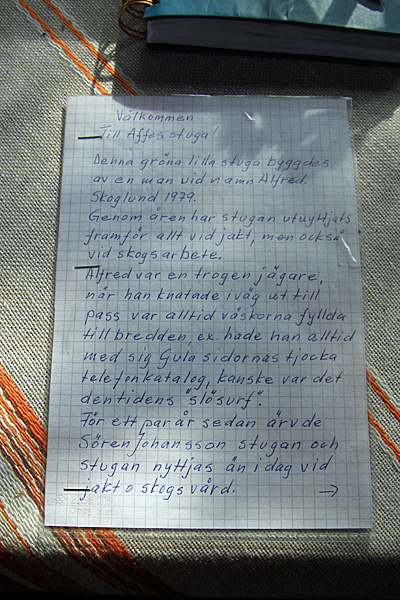 Välkommen
Till Affes stuga!
Denna gröna lilla stuga byggdes
av en man vid namn Alfred
Skoglund 1979.
Genom åren har stugan utnyttjats
framför allt vid jakt, men också
vid skogsarbete.
Alfred var en trogen jägare,
när han knatade iväg ut till
pass var alltid väskorna fyllda
till bredden, ex. hade han alltid
med sig Gula sidornas tjocka
telefonkatalog, kanske var det
dentidens "slösurf".
För ett par år sedan ärvde
Sören Johansson stugan och
stugan nyttjas än i dag vid
jakt o skogsvård. →